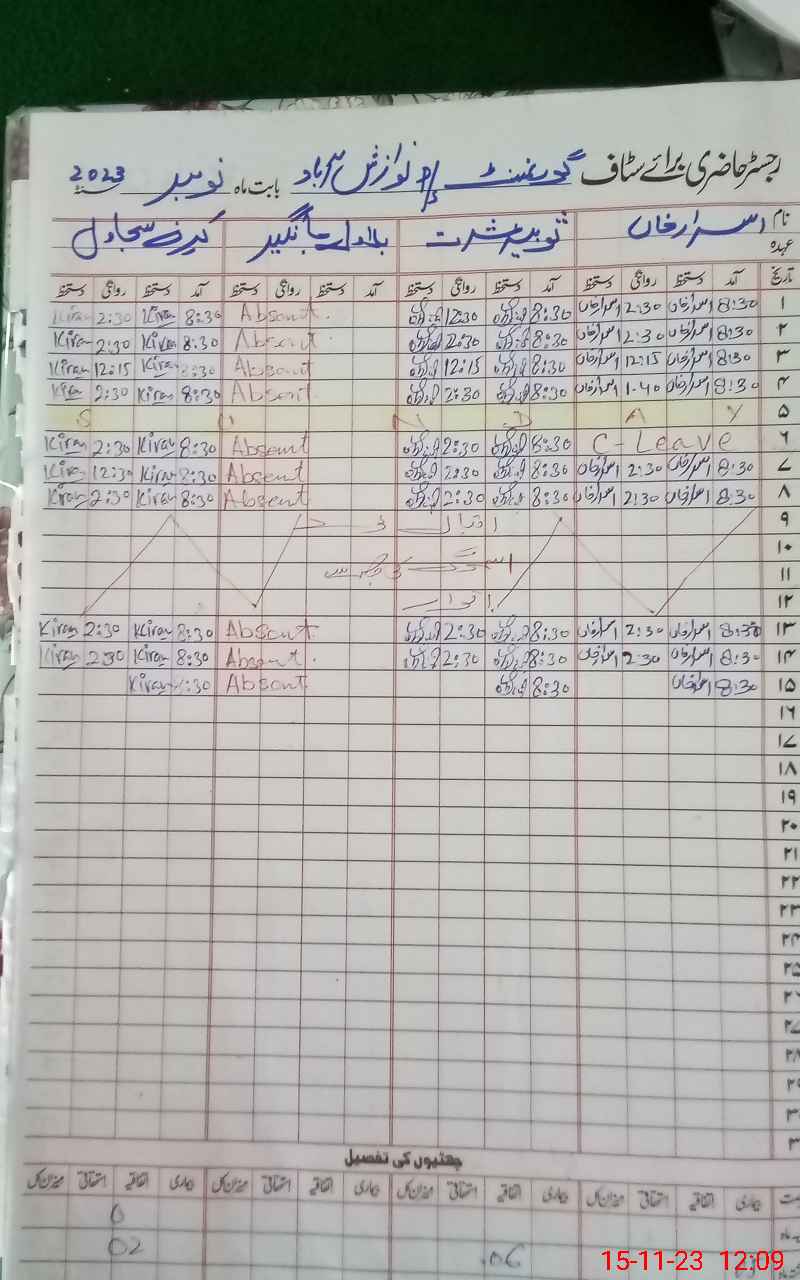 رجسٹر حاضری برائے سٹاف گورنمنٹ p/s نوازش آباد بابت ماہ نومبر 2023
نام اسرار خان ثوبیہ بلاول جہانگیر کرن سجاول
عہدہ
تاریخ آمد دستخط روانگی دستخط آمد دستخط روانگی دستخط آمد دستخط روانگی دستخط آمد دستخط روانگی دستخط
۱ 8:30 اسرارخان 2:30 اسرارخان 8:30 12:30 Absent 8:30 Kiran 2:30 Kiran
۲ 8:30 اسرارخان 2:30 اسرارخان 8:30 2:30 Absent 8:30 Kiran 2:30 Kiran
۳ 8:30 اسرارخان 12:15 اسرارخان 8:30 12:15 Absent 8:30 Kiran 12:15 Kiran
۴ 8:30 اسرارخان 1-40 اسرارخان 8:30 2:30 Absent 8:30 Kiran 2:30 Kiran
۵ S U N D A Y
۶ C-Leave 8:30 2:30 Absent 8:30 Kiran 2:30 Kiran
۷ 8:30 اسرارخان 2:30 اسرارخان 8:30 2:30 Absent 8:30 Kiran 12:30 Kiran
۸ 8:30 اسرارخان 2:30 اسرارخان 8:30 2:30 Absent 8:30 Kiran 2:30 Kiran
۹ اقبال ڈے
۱۰
۱۱ اسموگ کی وجہ سے
۱۲ اتوار
۱۳ 8:30 اسرارخان 2:30 اسرارخان 8:30 2:30 Absent 8:30 Kiran 2:30 Kiran
۱۴ 8:30 اسرارخان 2:30 اسرارخان 8:30 2:30 Absent 8:30 Kiran 2:30 Kiran
۱۵ 8:30 اسرارخان 8:30 Absent :30 Kiran
۱۶
۱۷
۱۸
۱۹
۲۰
۲۱
۲۲
۲۳
۲۴
۲۵
۲۶
۲۷
۲۸
۲۹
۳
۳
چھٹیوں کی تفصیل
بیماری اتفاقیہ استحقاقی میزان کل بیماری اتفاقیہ استحقاقی میزان کل بیماری اتفاقیہ استحقاقی میزان کل بیماری اتفاقیہ استحقاقی میزان کل
0
06 02
15-11-23 12:09